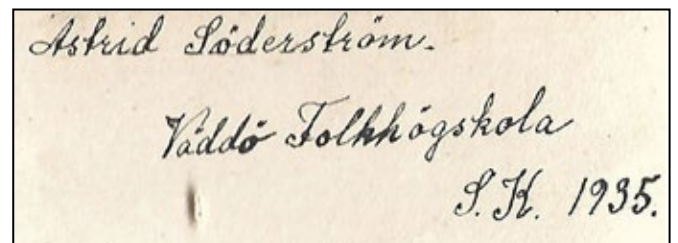 Astrid Söderström.
Väddö Folkhögskola
S.K. 1935.